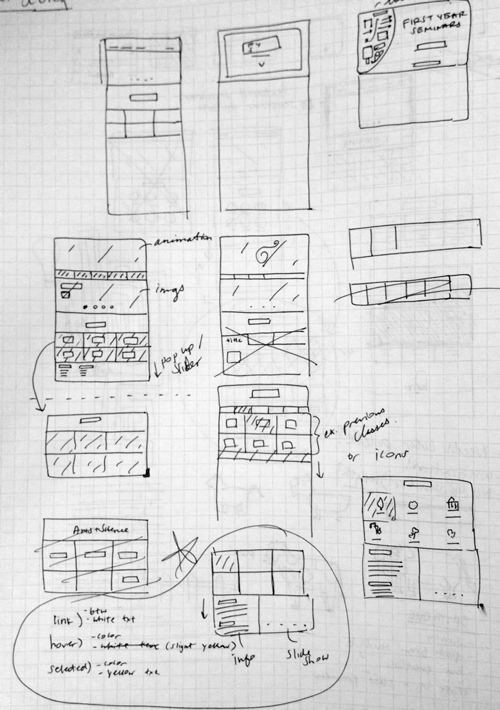 FIRST YEAR
SEMINARS
animation
imgs
pop up /
slider
title
ex. previous
classes.
or icons
Arts & Science
link) - btw
- white txt
hover) - color
- white text (slight yellow)
selected) - color
- yellow txt
info
slide
show